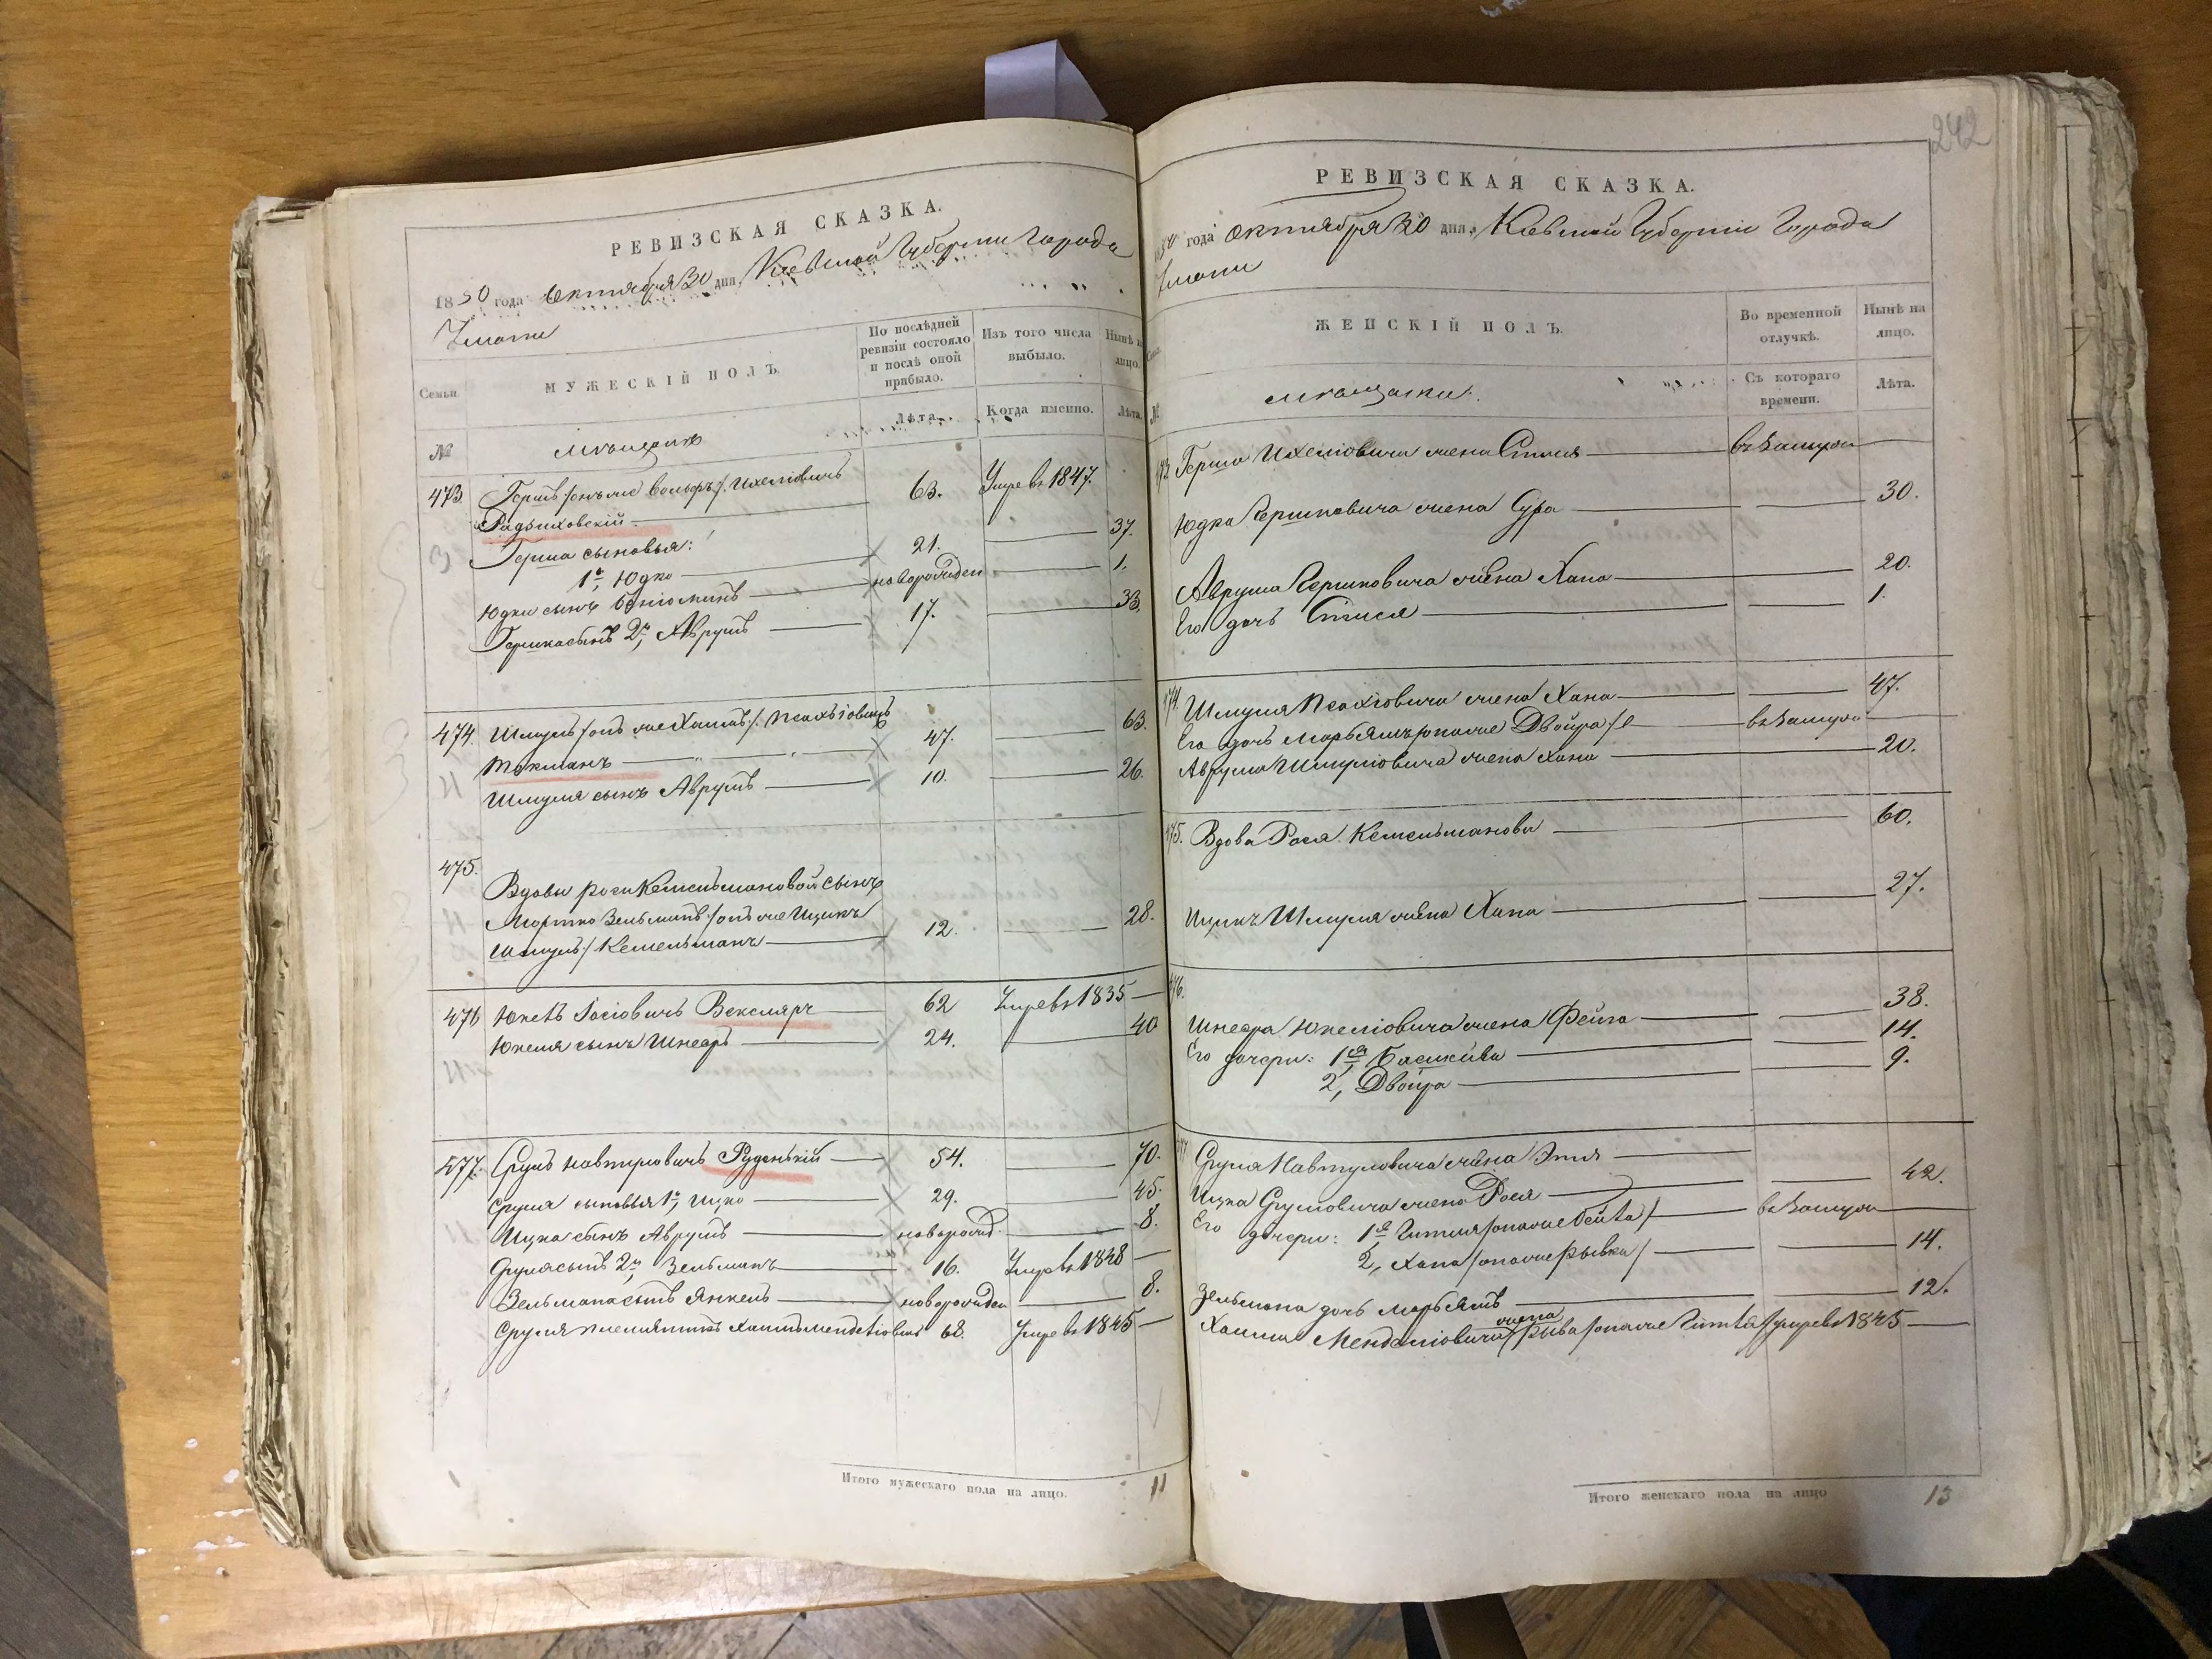 РЕВИЗСКАЯ СКАЗКА.
1850 года Октября 30 дня, Киевской Губернии Города
Умани
Семьи
МУЖЕСКІЙ ПОЛЪ.
По послѣдней ревизіи состояло и послѣ оной прибыло.
Изъ того числа выбыло.
Нынѣ на лицо.
№
Лѣта.
Когда именно.
Лѣта.
мѣщане
473 Гершъ /онъ же Вольфъ/ Ихеліовичъ 63. Умре въ 1847.
Радзиховскій
Герша сыновья:
1й, Юдко 21. 37.
Юдки сынъ Беніоминъ новорожден 1.
Гершка сынъ 2й, Аврумъ 17. 33.
474 Шмуль /онъ же Хаимъ/ Псахіовичъ
Токманъ 47. 63.
Шмуля сынъ Аврумъ 10. 26.
475. Вдовы Роси Кемельмановой сынъ
Мортко Зельманъ /онъ же Ицикъ
Шмуль/ Кемельманъ 12. 28.
476 Юкель Іосіовичъ Вексляръ 62 Умре въ 1835
Юкеля сынъ Шнеаръ 24. 40
477. Сруль Навтуловичъ Руденькій 54. 70.
Сруля сыновья 1й, Ицко 29. 45.
Ицка сынъ Аврумъ новорожд. 8.
Сруля сынъ 2й, Зельманъ 16. Умре въ 1848
Зельмана сынъ Янкель новорожден 8.
Сруля племянникъ Хаимъ Менделіовичъ 68. Умре въ 1845
Итого мужескаго пола на лицо. 11
242
РЕВИЗСКАЯ СКАЗКА.
года Октября 30 дня, Киевской Губерніи Города
Умани
ЖЕНСКІЙ ПОЛЪ.
Во временной отлучкѣ.
Нынѣ на лицо.
№
Съ котораго времени.
Лѣта.
мѣщанки.
Герша Ихеліовича жена Стися въ замуж
Юдка Гершковича жена Сура 30.
Аврума Гершковича жена Хана 20.
Его дочь Стися 1.
474 Шмуля Псахіовича жена Хана 47.
Его дочь Марьямъ /она же Двойра/ въ замуж
Аврума Шмуліовича жена Хана 20.
475. Вдова Рося Кемельманова 60.
Ицикъ Шмуля жена Хана 27.
476. Шнеара Юкеліовича жена Фейга 38.
Его дочери: 1я Басшива 14.
2, Двойра 9.
Сруля Навтуловича жена Этля
Ицка Сруловича жена Рося 42.
Его дочери: 1я Гитля /она же Бейта/ въ замуж
2, Хана /она же Рывка/ 14.
Зельмана дочь Марьямъ 12.
Хаима Менделіовича жена Рива /она же Гитта/ умре въ 1845
Итого женскаго пола на лицо 13